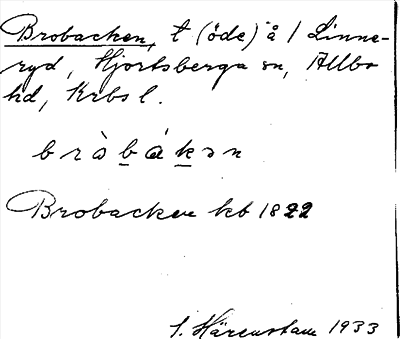 Brobacken, t (öde) å / Linne-
ryd, Hjortsberga sn, Allbo
hd, Krbs l.
bròbákən
Brobacken kb 1822
S. Härenstam 1933